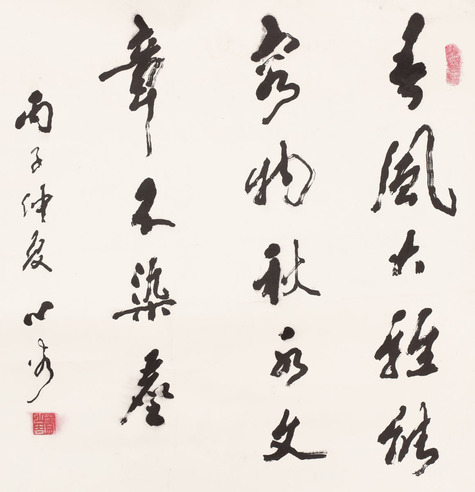 春風大雅能
容物秋水文
章不染塵
丙子仲夏